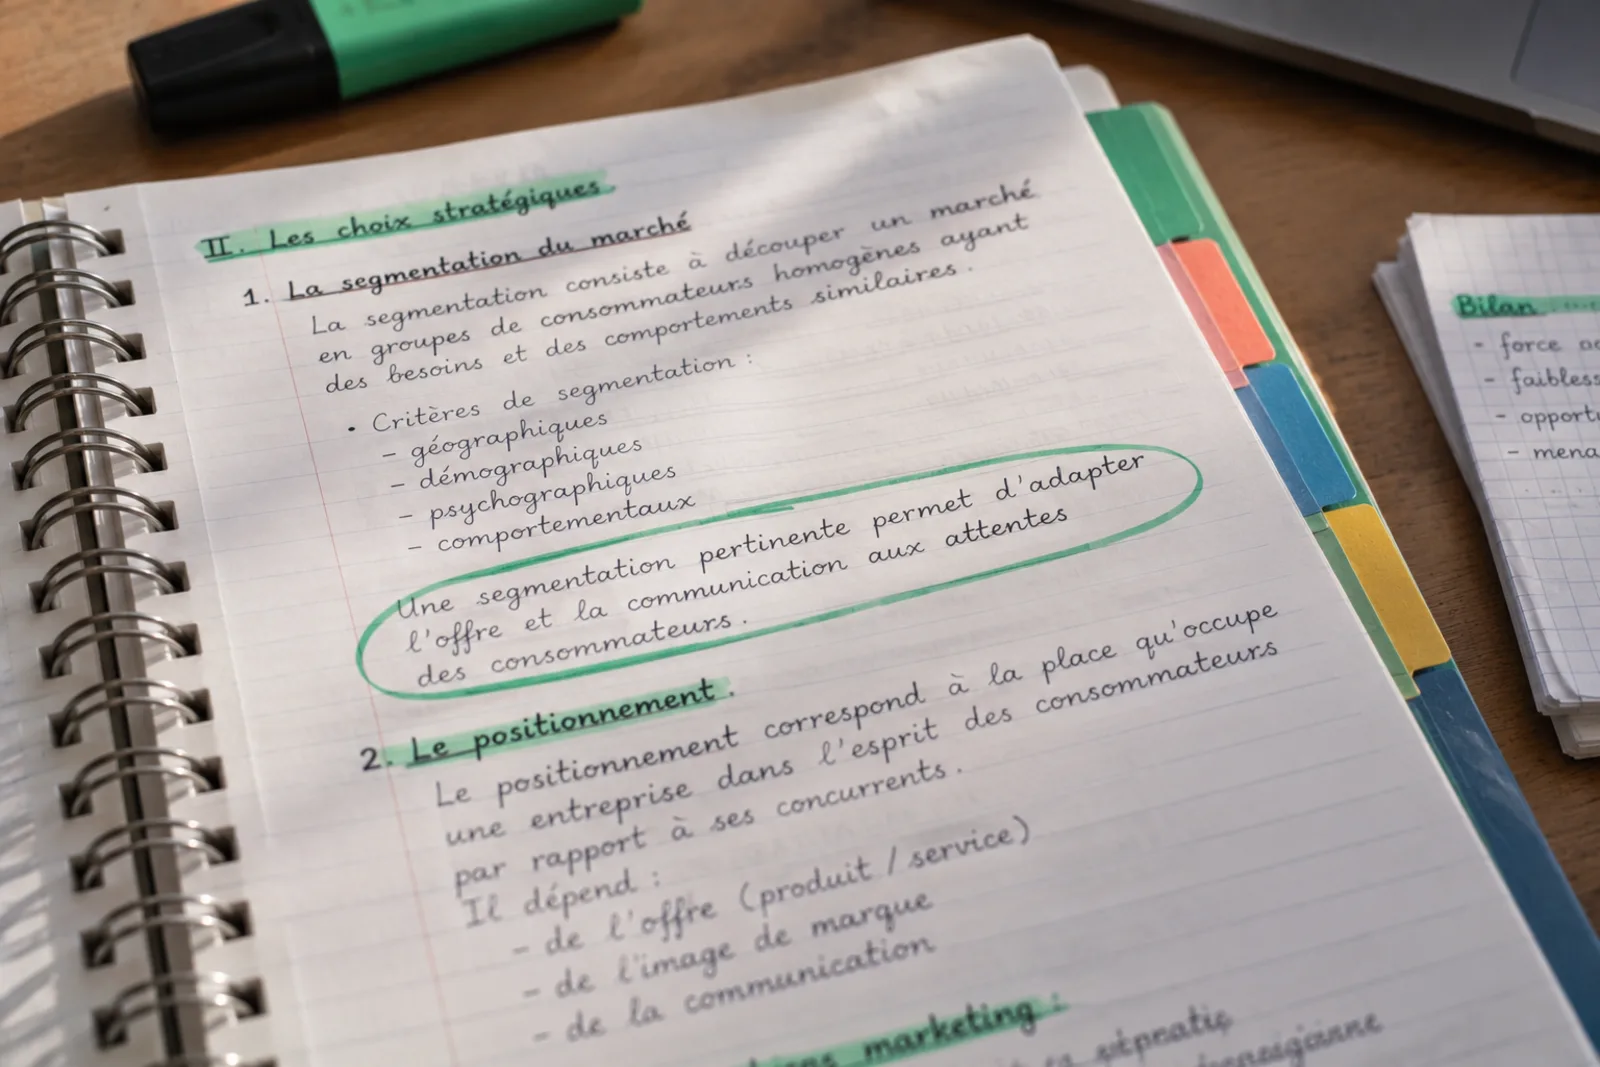 II. Les choix stratégiques
1. La segmentation du marché
La segmentation consiste à découper un marché
en groupes de consommateurs homogènes ayant
des besoins et des comportements similaires.
• Critères de segmentation :
- géographiques
- démographiques
- psychographiques
- comportementaux
Une segmentation pertinente permet d'adapter
l'offre et la communication aux attentes
des consommateurs.
2. Le positionnement.
Le positionnement correspond à la place qu'occupe
une entreprise dans l'esprit des consommateurs
par rapport à ses concurrents.
Il dépend :
- de l'offre (produit / service)
- de l'image de marque
- de la communication
marketing :
Bilan
- force
-
-
-